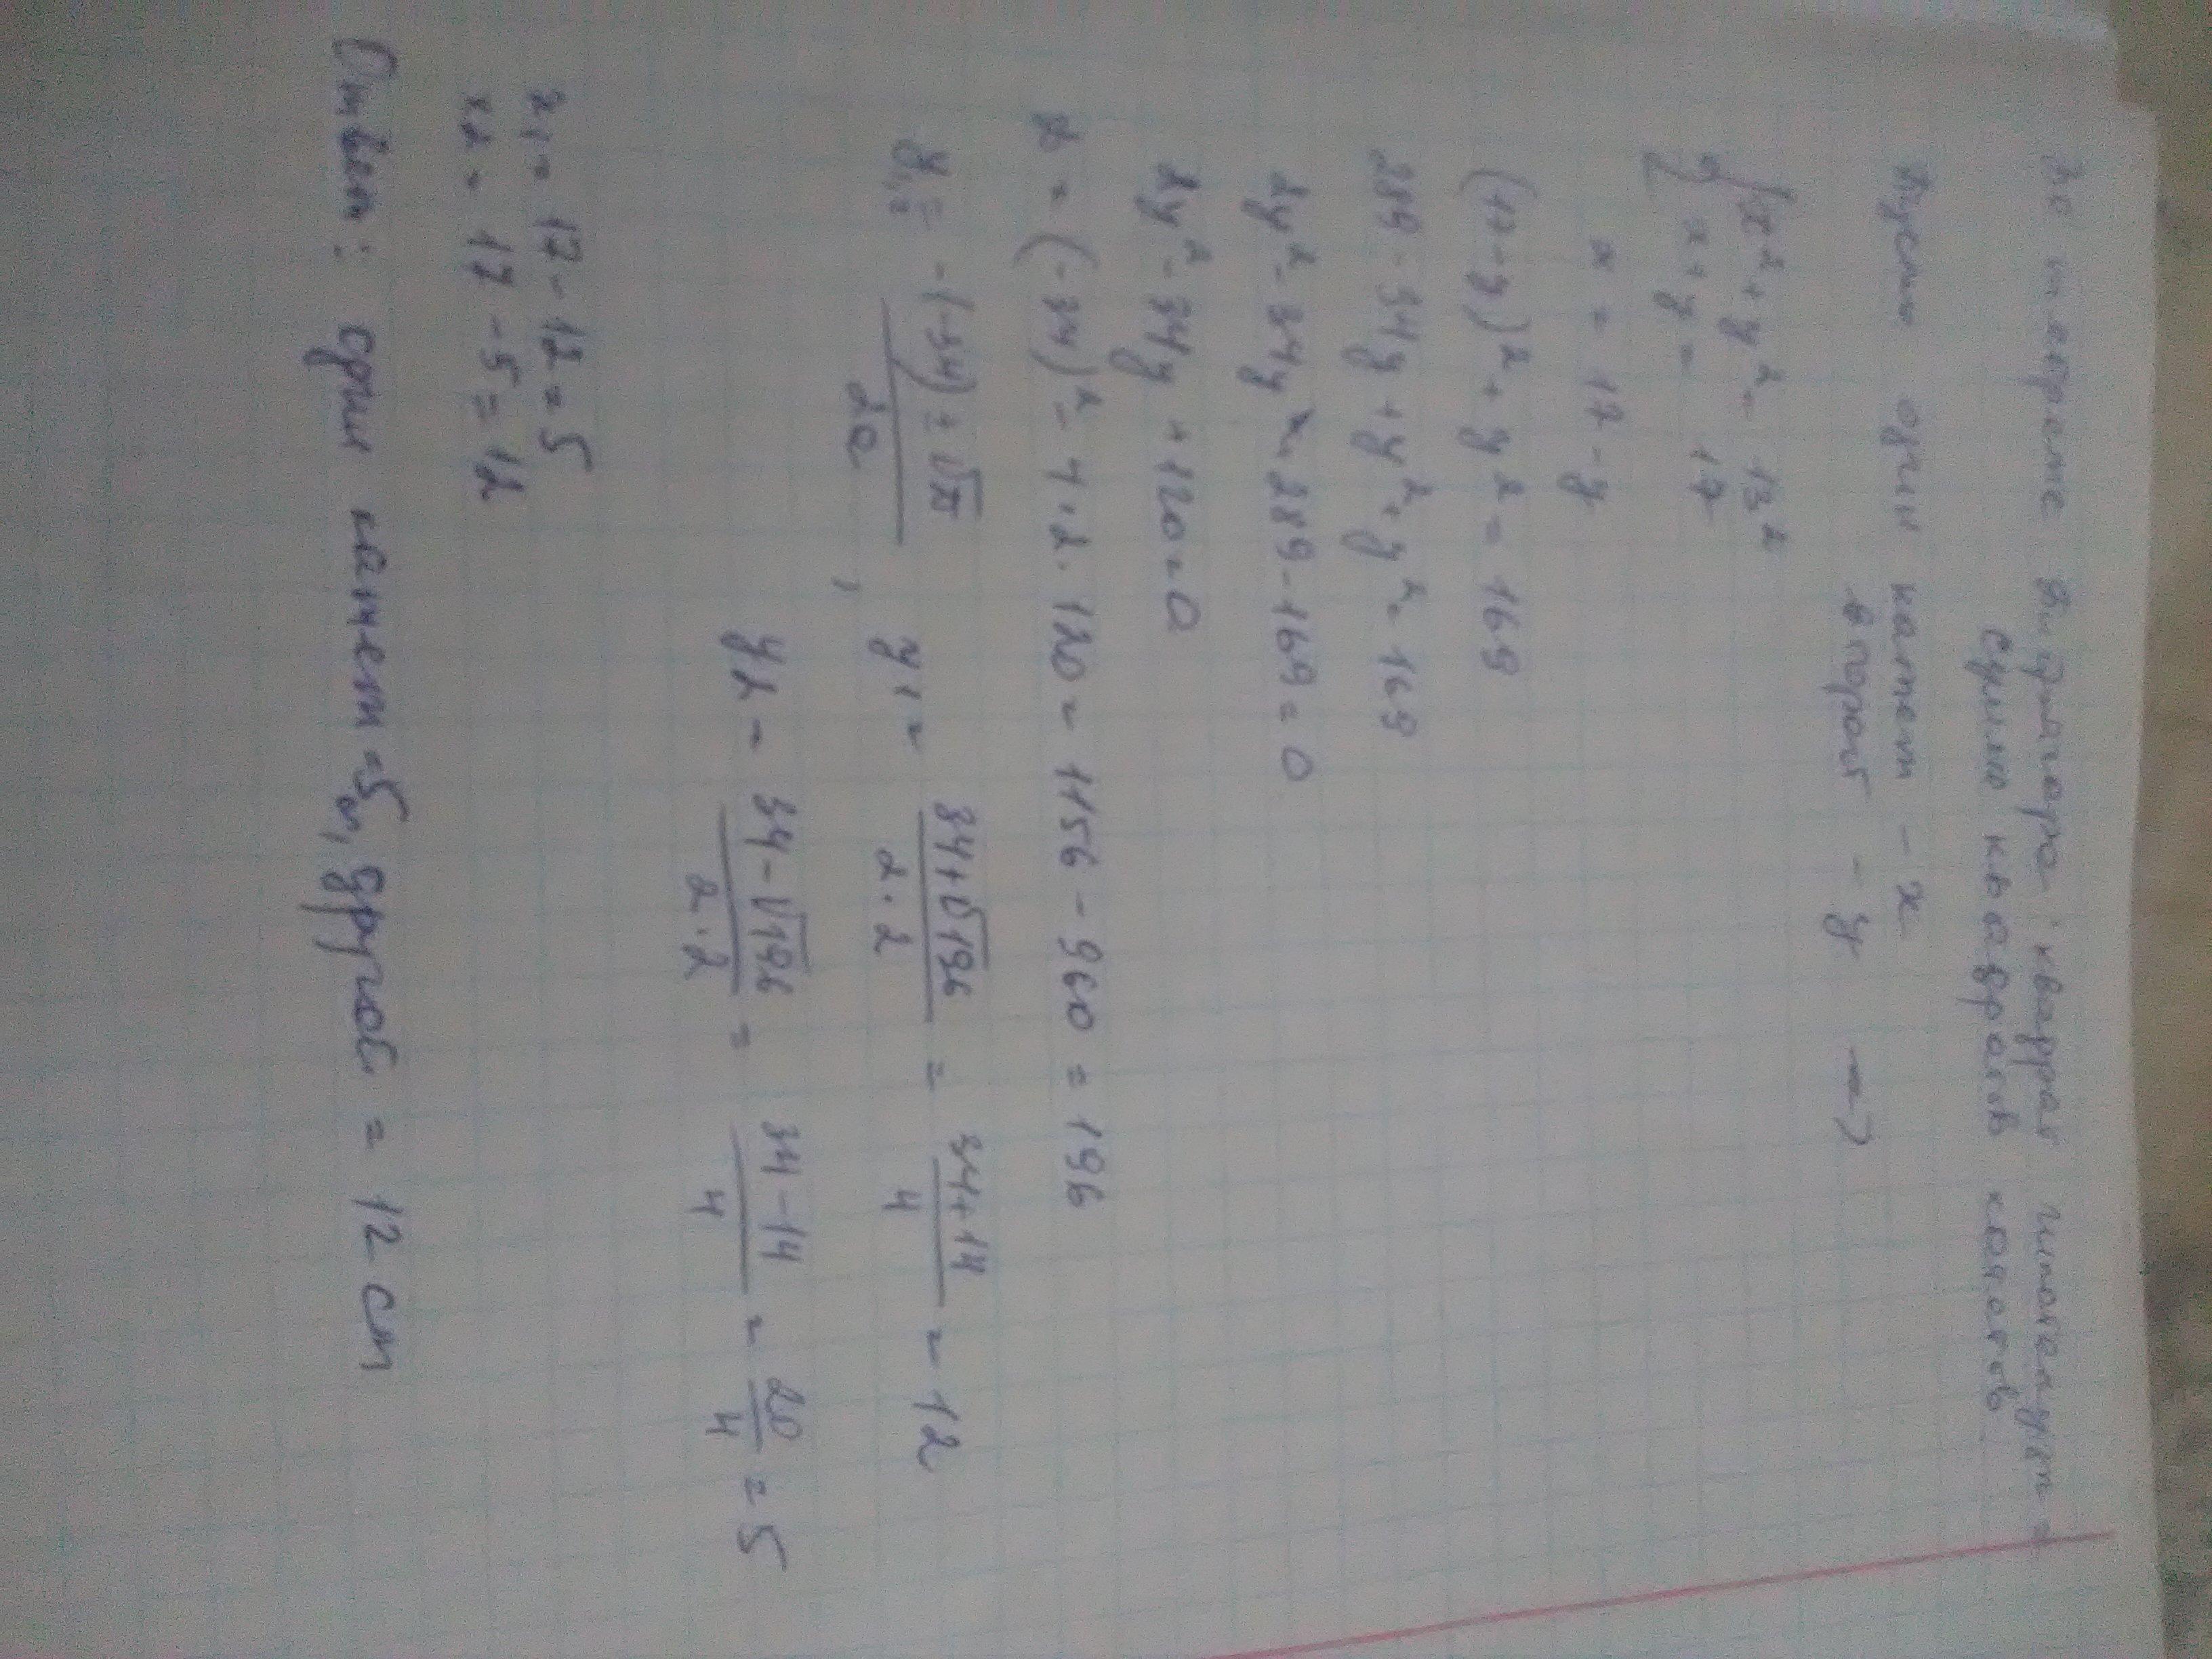 По теореме Пифагора: квадрат гипотенузы =
сумме квадратов катетов
Пусть один катет - x
второй - y
{ x² + y² = 13²
x + y = 17
x = 17 - y
(17-y)² + y² = 169
289 - 34y + y² + y² = 169
2y² - 34y + 289 - 169 = 0
2y² - 34y + 120 = 0
D = (-34)² - 4·2·120 = 1156 - 960 = 196
y₁,₂ = -(-34) ± √D / 2a , y1 = 34+√196 / 2·2 = 34+14 / 4 = 12
y2 = 34-√196 / 2·2 = 34-14 / 4 = 20 / 4 = 5
x1 = 17 - 12 = 5
x2 = 17 - 5 = 12
Ответ: один катет = 5 см, другой = 12 см